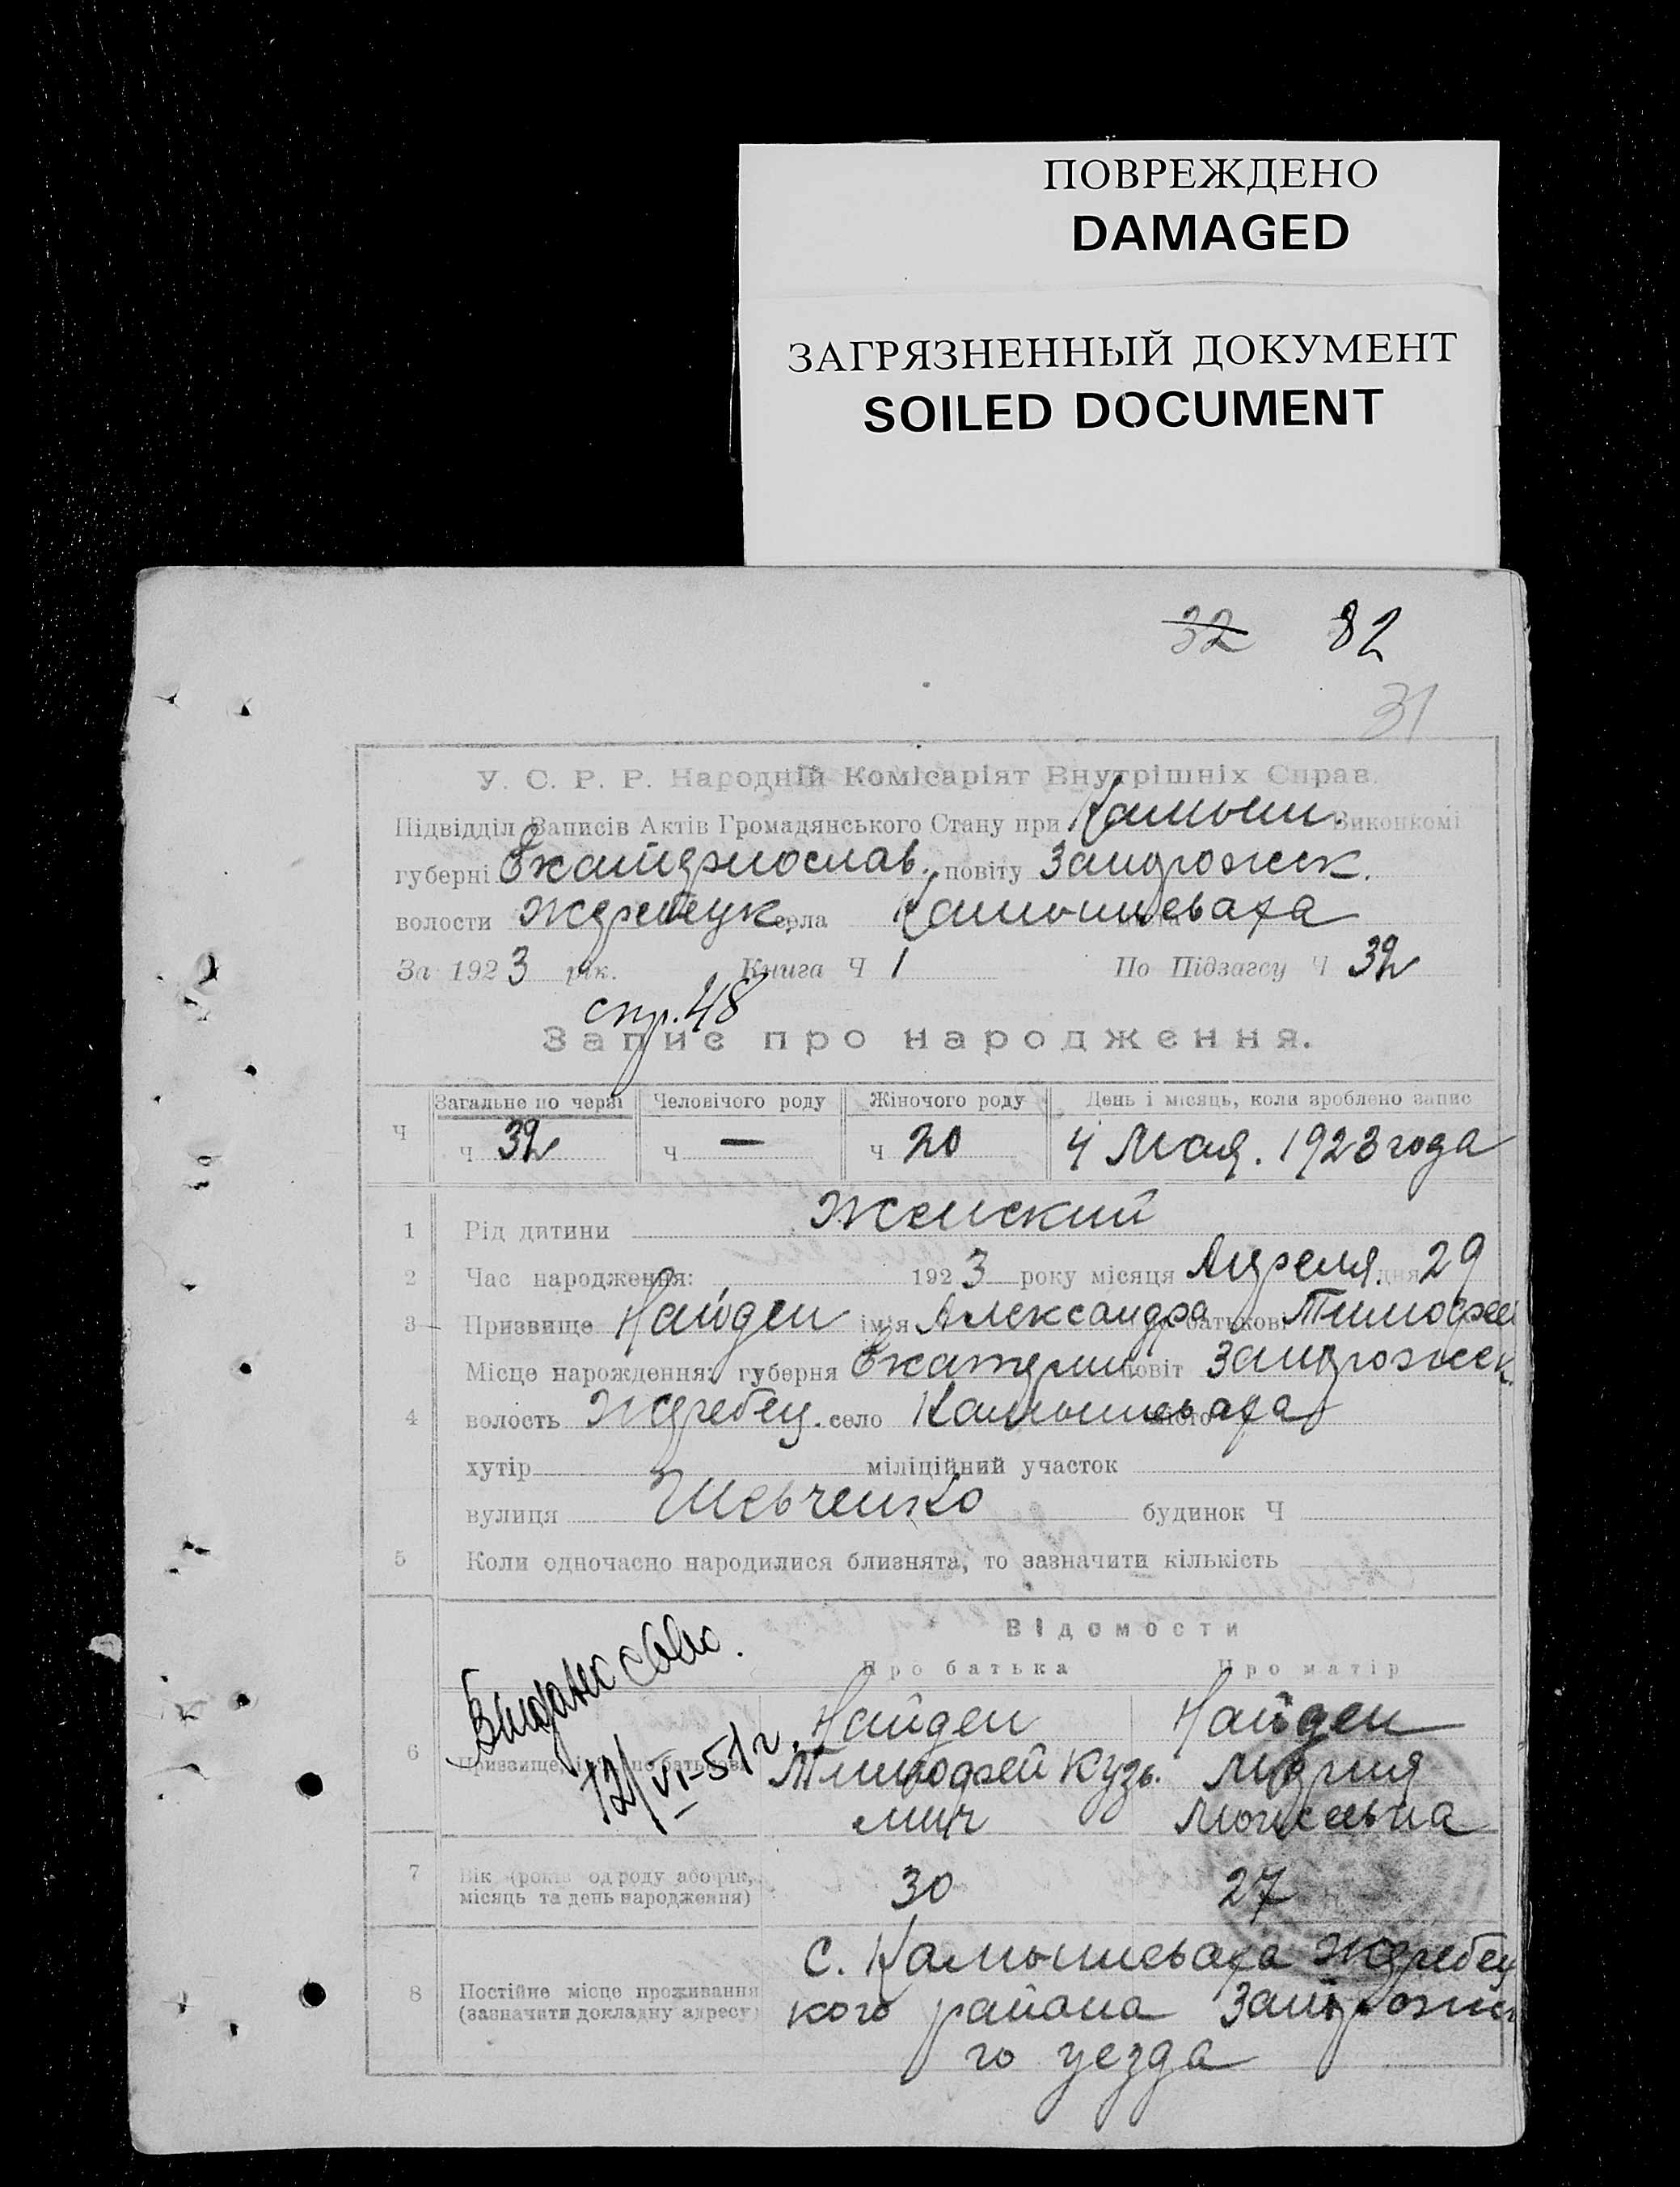 ПОВРЕЖДЕНО
DAMAGED
ЗАГРЯЗНЕННЫЙ ДОКУМЕНТ
SOILED DOCUMENT
32 82
31
У. С. Р. Р. Народній Комісаріят Внутрішніх Справ.
Підвідділ Записів Актів Громадянського Стану при Камыш. Виконкомі
губерні Екатеринослав. повіту Запорожск.
волости Жеребецк. села Камышеваха
За 1923 рік. Книга Ч 1 По Підзагсу Ч 32
стр. 48
Запис про народження.
Загальне по черзі Человічого роду Жіночого роду День і місяць, коли зроблено запис
Ч ч 32 ч — ч 20 4 Мая. 1923 года
1 Рід дитини Женский
2 Час народження: 1923 року місяця Апреля дня 29
3 Призвище Найден ім'я Александра батькові Тимофее
Місце народження: губерня Екатерин. повіт Запорожск.
4 волость Жеребец. село Камышеваха
хутір міліційний участок
вулиця Шевченко будинок Ч
5 Коли одночасно народилися близнята, то зазначити кількість
Відомости
Про батька Про матір
Выдано свид.
12/VI-51 г.
6 Призвище, по батькові
Найден Найден
Тимофей Кузь- Мария
мич Моисеевна
7 Вік (років од роду або рік, місяць та день народження) 30 27
8 Постійне місце проживання (зазначити докладну адресу)
С. Камышеваха Жеребец
кого района Запорожск
го уезда